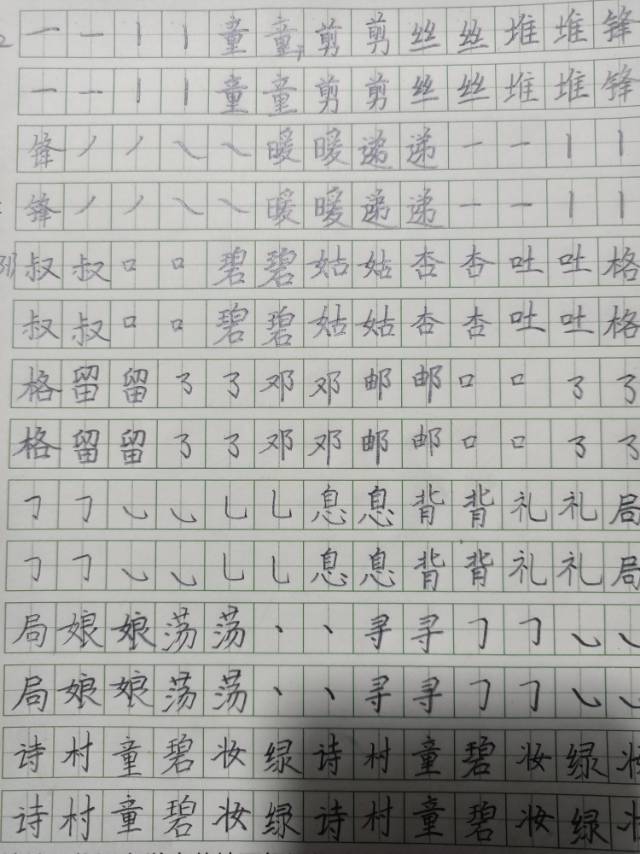 一 一 丨 丨 童 童 剪 剪 丝 丝 堆 堆 锋
一 一 丨 丨 童 童 剪 剪 丝 丝 堆 堆 锋
锋 丿 丿 ㇏ ㇏ 暖 暖 递 递 一 一 丨 丨
锋 丿 丿 ㇏ ㇏ 暖 暖 递 递 一 一 丨 丨
叔 叔 口 口 碧 碧 姑 姑 杏 杏 吐 吐 格
叔 叔 口 口 碧 碧 姑 姑 杏 杏 吐 吐 格
格 留 留 ㇋ ㇋ 邓 邓 邮 邮 口 口 ㇋ ㇋
格 留 留 ㇋ ㇋ 邓 邓 邮 邮 口 口 ㇋ ㇋
㇆ ㇆ ㇃ ㇃ ㇟ ㇟ 息 息 背 背 礼 礼 局
㇆ ㇆ ㇃ ㇃ ㇟ ㇟ 息 息 背 背 礼 礼 局
局 娘 娘 荡 荡 丶 丶 寻 寻 ㇆ ㇆ ㇃ ㇃
局 娘 娘 荡 荡 丶 丶 寻 寻 ㇆ ㇆ ㇃ ㇃
诗 村 童 碧 妆 绿 诗 村 童 碧 妆 绿 妆
诗 村 童 碧 妆 绿 诗 村 童 碧 妆 绿